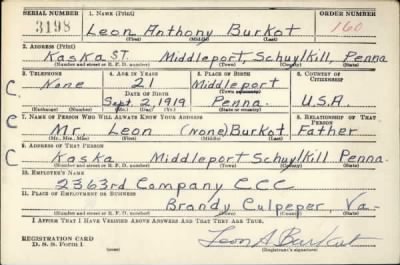 SERIAL NUMBER 1. NAME (Print) ORDER NUMBER
3198 Leon Anthony Burkot 160
(First) (Middle) (Last)
2. ADDRESS (Print)
Kaska ST Middleport, Schuylkill, Penna
(Number and street or R. F. D. number) (Town) (County) (State)
3. TELEPHONE 4. AGE IN YEARS 5. PLACE OF BIRTH 6. COUNTRY OF CITIZENSHIP
C. None 21 Middleport
DATE OF BIRTH (Town or county)
Sept. 2, 1919 Penna. U.S.A.
(Exchange) (Number) (Mo.) (Day) (Yr.) (State or country)
7. NAME OF PERSON WHO WILL ALWAYS KNOW YOUR ADDRESS 8. RELATIONSHIP OF THAT PERSON
C Mr. Leon (None) Burkot Father
(Mr., Mrs., Miss) (First) (Middle) (Last)
9. ADDRESS OF THAT PERSON
C Kaska Middleport Schuylkill Penna.
(Number and street or R. F. D. number) (Town) (County) (State)
10. EMPLOYER'S NAME
2363rd Company CCC
11. PLACE OF EMPLOYMENT OR BUSINESS
Brandy Culpeper, Va-
(Number and street or R. F. D. number) (Town) (County) (State)
I AFFIRM THAT I HAVE VERIFIED ABOVE ANSWERS AND THAT THEY ARE TRUE.
REGISTRATION CARD
D. S. S. Form 1 Leon A. Burkot
(Registrant's signature)